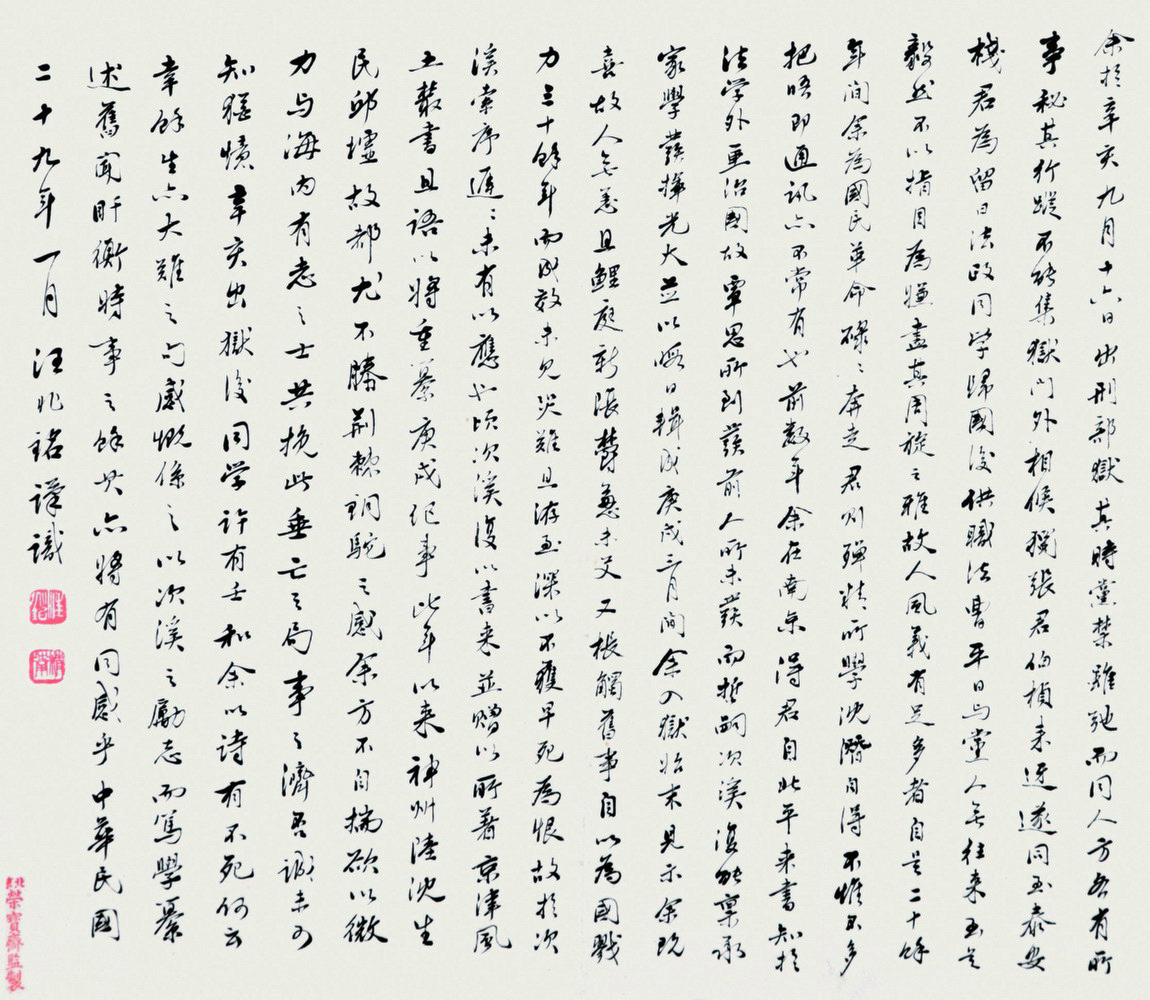 余於辛亥九月十六日出刑部獄其時黨禁雖弛而同人方各有所
事秘其行蹤不能集獄門外相候獨張君伯楨來迓遂同至泰安
棧君為留日法政同学歸國後供職法曹平日与黨人無往來至是
毅然不以指目為嫌盡其周旋之雅故人風義有足多者自是二十餘
年间余為國民革命碌々奔走君则殫精所學沈潛自得不惟不多
把晤即通訊亦不常有也前数年余在南京得君自北平來書知於
法学外亟治國故覃思所到發前人所未發而哲嗣次溪復能禀承
家學發揮光大並以暇日輯成庚戌三月间余入獄始末見示余既
喜故人無恙且鯉庭新賬鬱蔥未艾又棖觸舊事自以為國戮
力三十餘年而成效未見災難且洊至深以不獲早死為恨故於次
溪索序遲々未有以應也頃次溪復以書來並贈以所著京津風
土叢書且語以將重纂庚戌纪事比年以来神州陸沈生
民邱墟故都尤不勝荆棘銅駝之感余方不自揣欲以微
力与海内有志之士共挽此垂亡之局事之濟否誠未可
知猶憶辛亥出獄後同学許有壬和余以诗有不死何云
幸餘生亦大難之句感慨係之以次溪之勵志而篤學纂
述舊聞盱衡時事之餘其亦將有同感乎中華民國
二十九年一月 汪兆銘謹識
榮寶齋監製